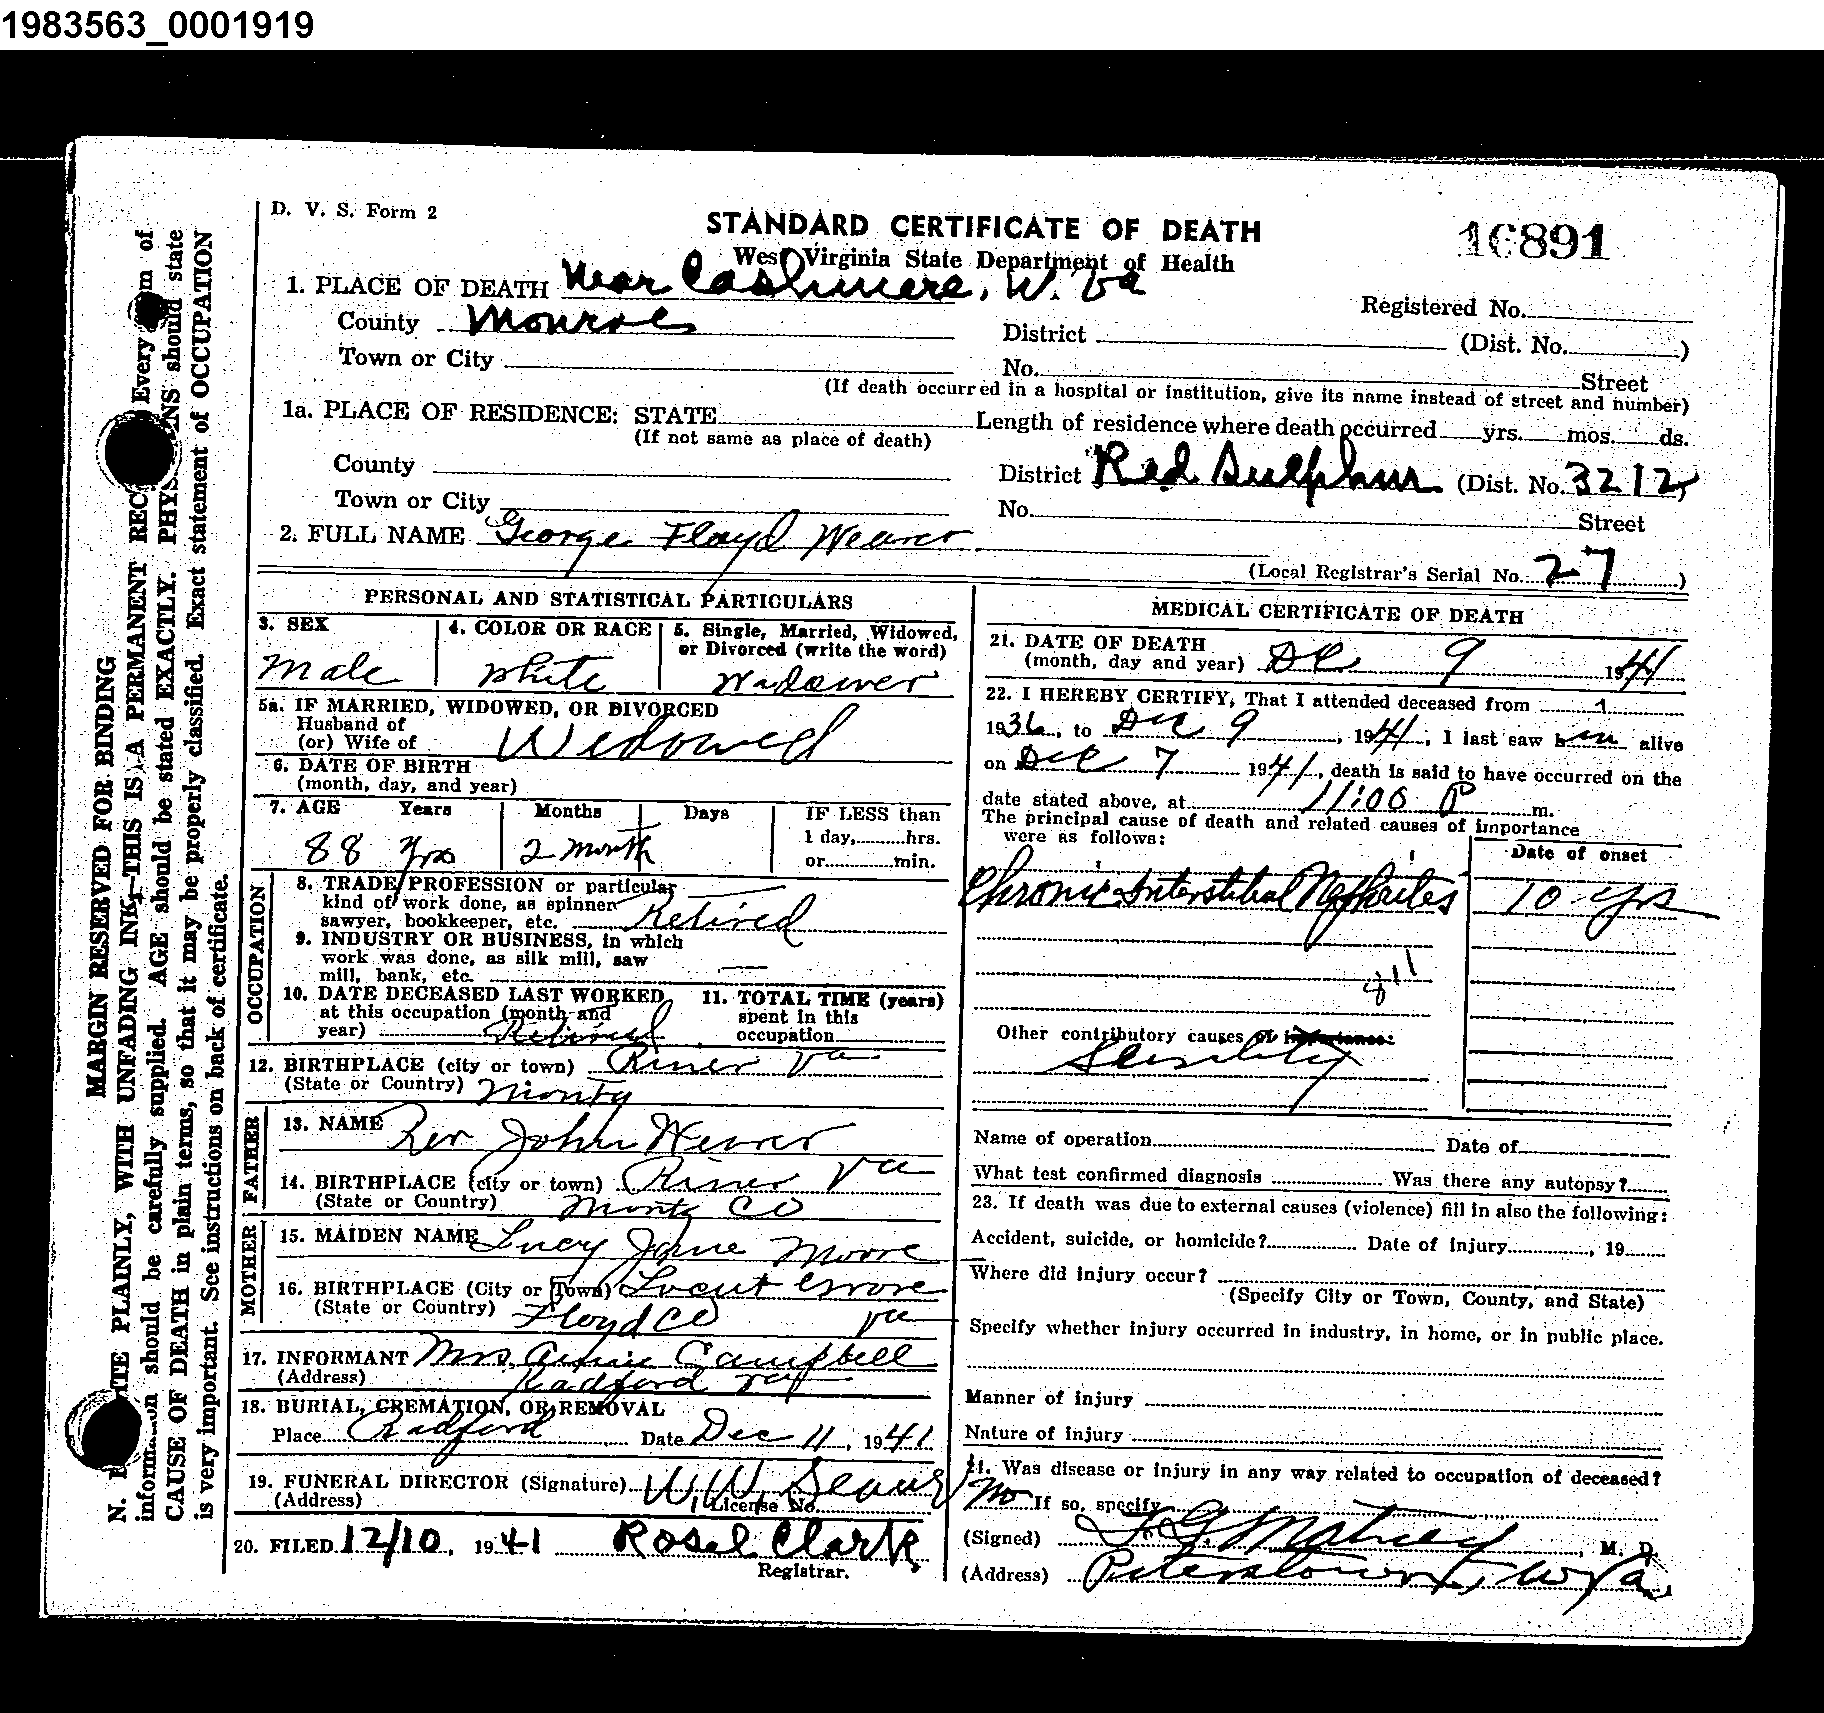 1983563_0001919
D. V. S. Form 2
STANDARD CERTIFICATE OF DEATH
16891
West Virginia State Department of Health
1. PLACE OF DEATH Near Cashmere, W. Va
Registered No.
County Monroe
District (Dist. No. )
Town or City
No. Street
(If death occurred in a hospital or institution, give its name instead of street and number)
1a. PLACE OF RESIDENCE: STATE
Length of residence where death occurred yrs. mos. ds.
(If not same as place of death)
County
District Red Sulphur (Dist. No. 3212
Town or City
No. Street
2. FULL NAME George Floyd Weaver
(Local Registrar's Serial No. 27 )
PERSONAL AND STATISTICAL PARTICULARS
3. SEX
Male
4. COLOR OR RACE
White
5. Single, Married, Widowed,
or Divorced (write the word)
Widower
5a. IF MARRIED, WIDOWED, OR DIVORCED
Husband of
(or) Wife of Widowed
6. DATE OF BIRTH
(month, day, and year)
7. AGE Years Months Days
IF LESS than
1 day, hrs.
or min.
88 Yrs 2 month
OCCUPATION
8. TRADE, PROFESSION or particular
kind of work done, as spinner
sawyer, bookkeeper, etc. Retired
9. INDUSTRY OR BUSINESS, in which
work was done, as silk mill, saw
mill, bank, etc.
10. DATE DECEASED LAST WORKED
at this occupation (month and
year) Retired
11. TOTAL TIME (years)
spent in this
occupation
12. BIRTHPLACE (city or town) Riner Va
(State or Country) Montg
FATHER
13. NAME Rev John Weaver
14. BIRTHPLACE (city or town) Riner Va
(State or Country) Montg CO
MOTHER
15. MAIDEN NAME Lucy Jane Moore
16. BIRTHPLACE (City or Town) Locut Grove
(State or Country) Floyd CO Va
17. INFORMANT Mrs. Annie Campbell
(Address) Radford Va
18. BURIAL, CREMATION, OR REMOVAL
Place Radford Date Dec 11, 1941
19. FUNERAL DIRECTOR (Signature) W. W.
(Address) License No.
20. FILED 12/10, 1941 Rosa L Clark
Registrar.
MEDICAL CERTIFICATE OF DEATH
21. DATE OF DEATH
(month, day and year) Dec 9 1941
22. I HEREBY CERTIFY, That I attended deceased from 1
1936, to Dec 9, 1941, I last saw him alive
on Dec 7 1941, death is said to have occurred on the
date stated above, at 11:00 P m.
The principal cause of death and related causes of importance
were as follows:
Date of onset
Chronic Interstitial Nephrites 10 yrs
Other contributory causes of importance:
Senility
Name of operation Date of
What test confirmed diagnosis Was there any autopsy?
23. If death was due to external causes (violence) fill in also the following:
Accident, suicide, or homicide? Date of injury , 19
Where did injury occur?
(Specify City or Town, County, and State)
Specify whether injury occurred in industry, in home, or in public place.
Manner of injury
Nature of injury
24. Was disease or injury in any way related to occupation of deceased?
No If so, specify
(Signed) Matney, M. D.
(Address) Peterstown, W Va
MARGIN RESERVED FOR BINDING
WRITE PLAINLY, WITH UNFADING INK—THIS IS A PERMANENT REC Every of
information should be carefully supplied. AGE should be stated EXACTLY. PHYS NS should state
CAUSE OF DEATH in plain terms, so that it may be properly classified. Exact statement of OCCUPATION
is very important. See instructions on back of certificate.